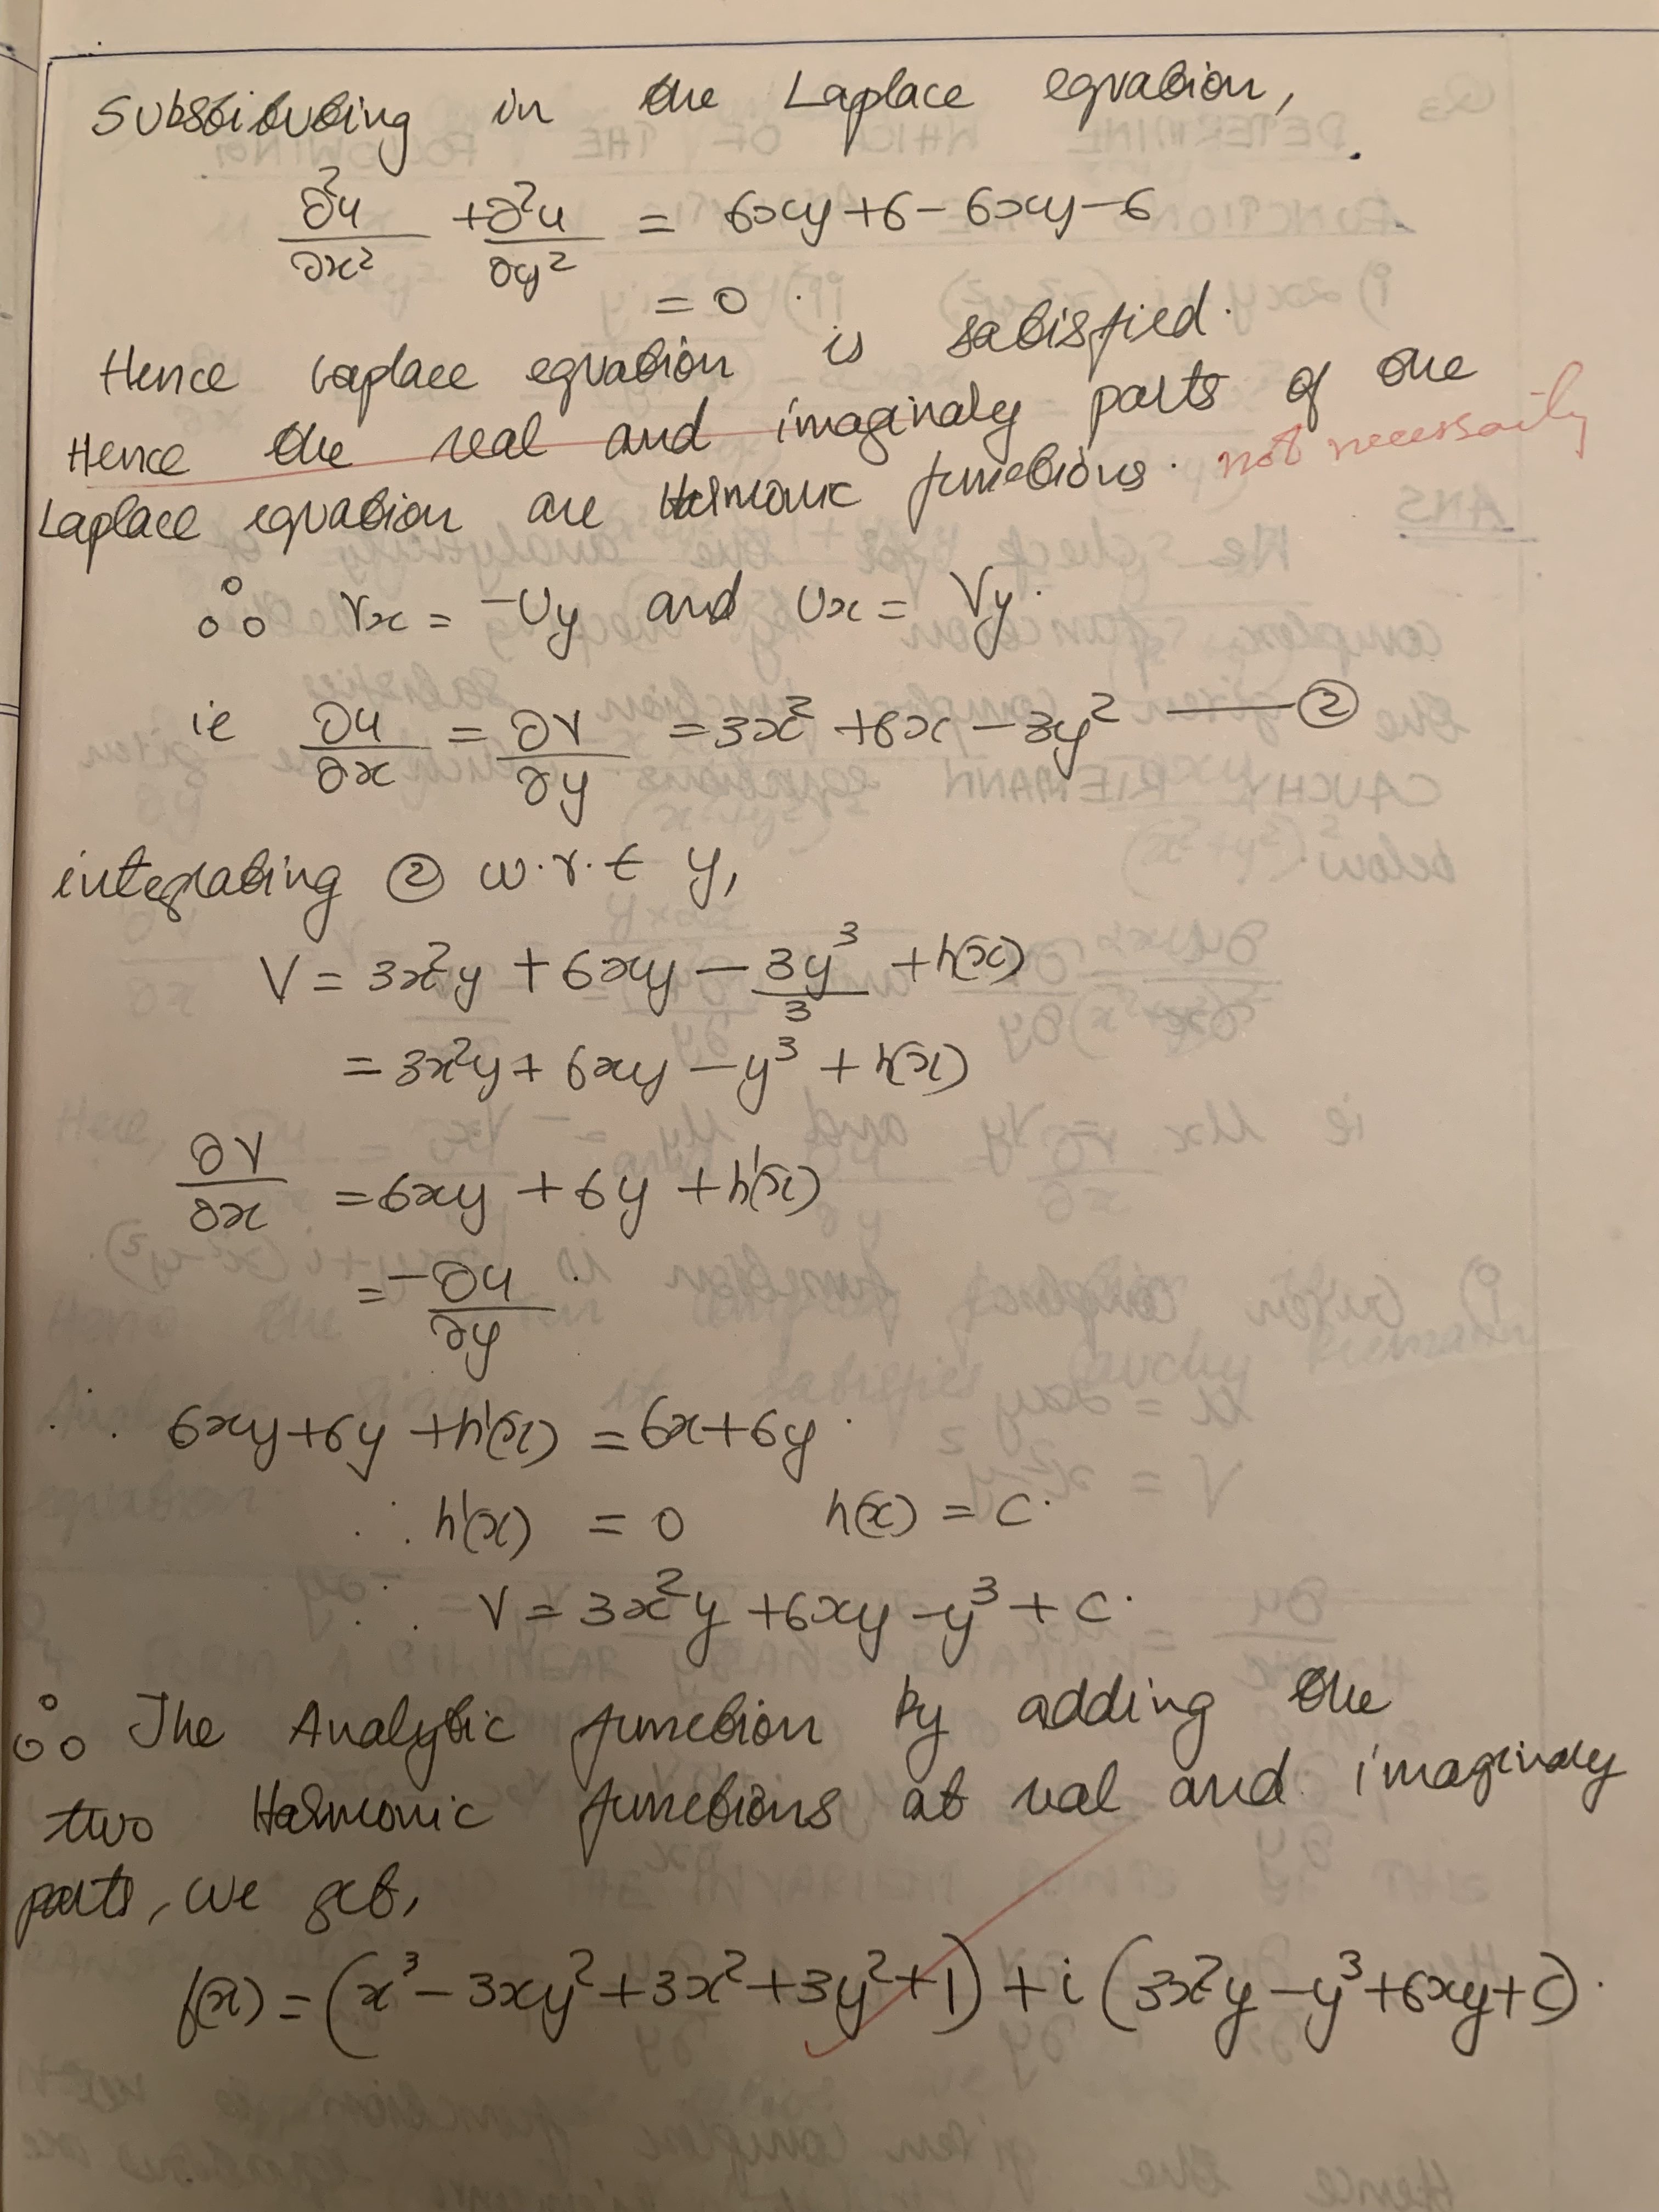 Substituting in the Laplace equation,
∂²u/∂x² + ∂²u/∂y² = 6xy + 6 - 6xy - 6
= 0
Hence Laplace equation is satisfied.
Hence the real and imaginary parts of the
Laplace equation are Harmonic functions. not necessarily
∴ Vx = -Uy and Ux = Vy.
ie ∂u/∂x = ∂V/∂y = 3x² + 6x - 3y² —— ②
integrating ② w.r.t y,
V = 3x²y + 6xy - 3y³/3 + h(x)
= 3x²y + 6xy - y³ + h(x)
∂V/∂x = 6xy + 6y + h'(x)
= -∂u/∂y
∴ 6xy + 6y + h'(x) = 6x + 6y.
∴ h'(x) = 0 h(x) = C.
∴ V = 3x²y + 6xy - y³ + C.
∴ The Analytic function by adding the
two Harmonic functions at real and imaginary
parts, we get,
f(x) = (x³ - 3xy² + 3x² + 3y² + 1) + i (3x²y - y³ + 6xy + C).